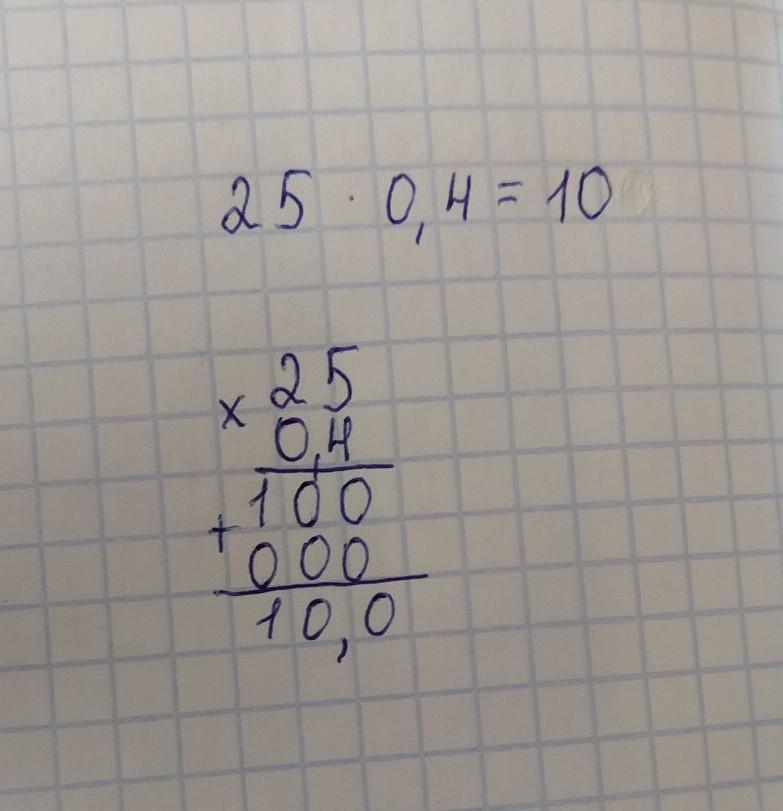 25 · 0,4 = 10
25
×
0,4
100
+
000
10,0